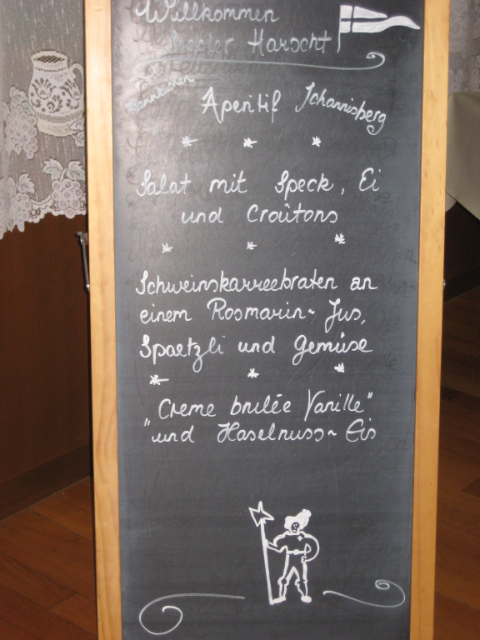 Willkommen
Harscht
Aperitif Johannisberg
Salat mit Speck, Ei
und Croûtons
Schweinskarreebraten an
einem Rosmarin~Jus,
Spaetzli und Gemüse
"Creme brulée Vanille"
"und Haselnuss~Eis